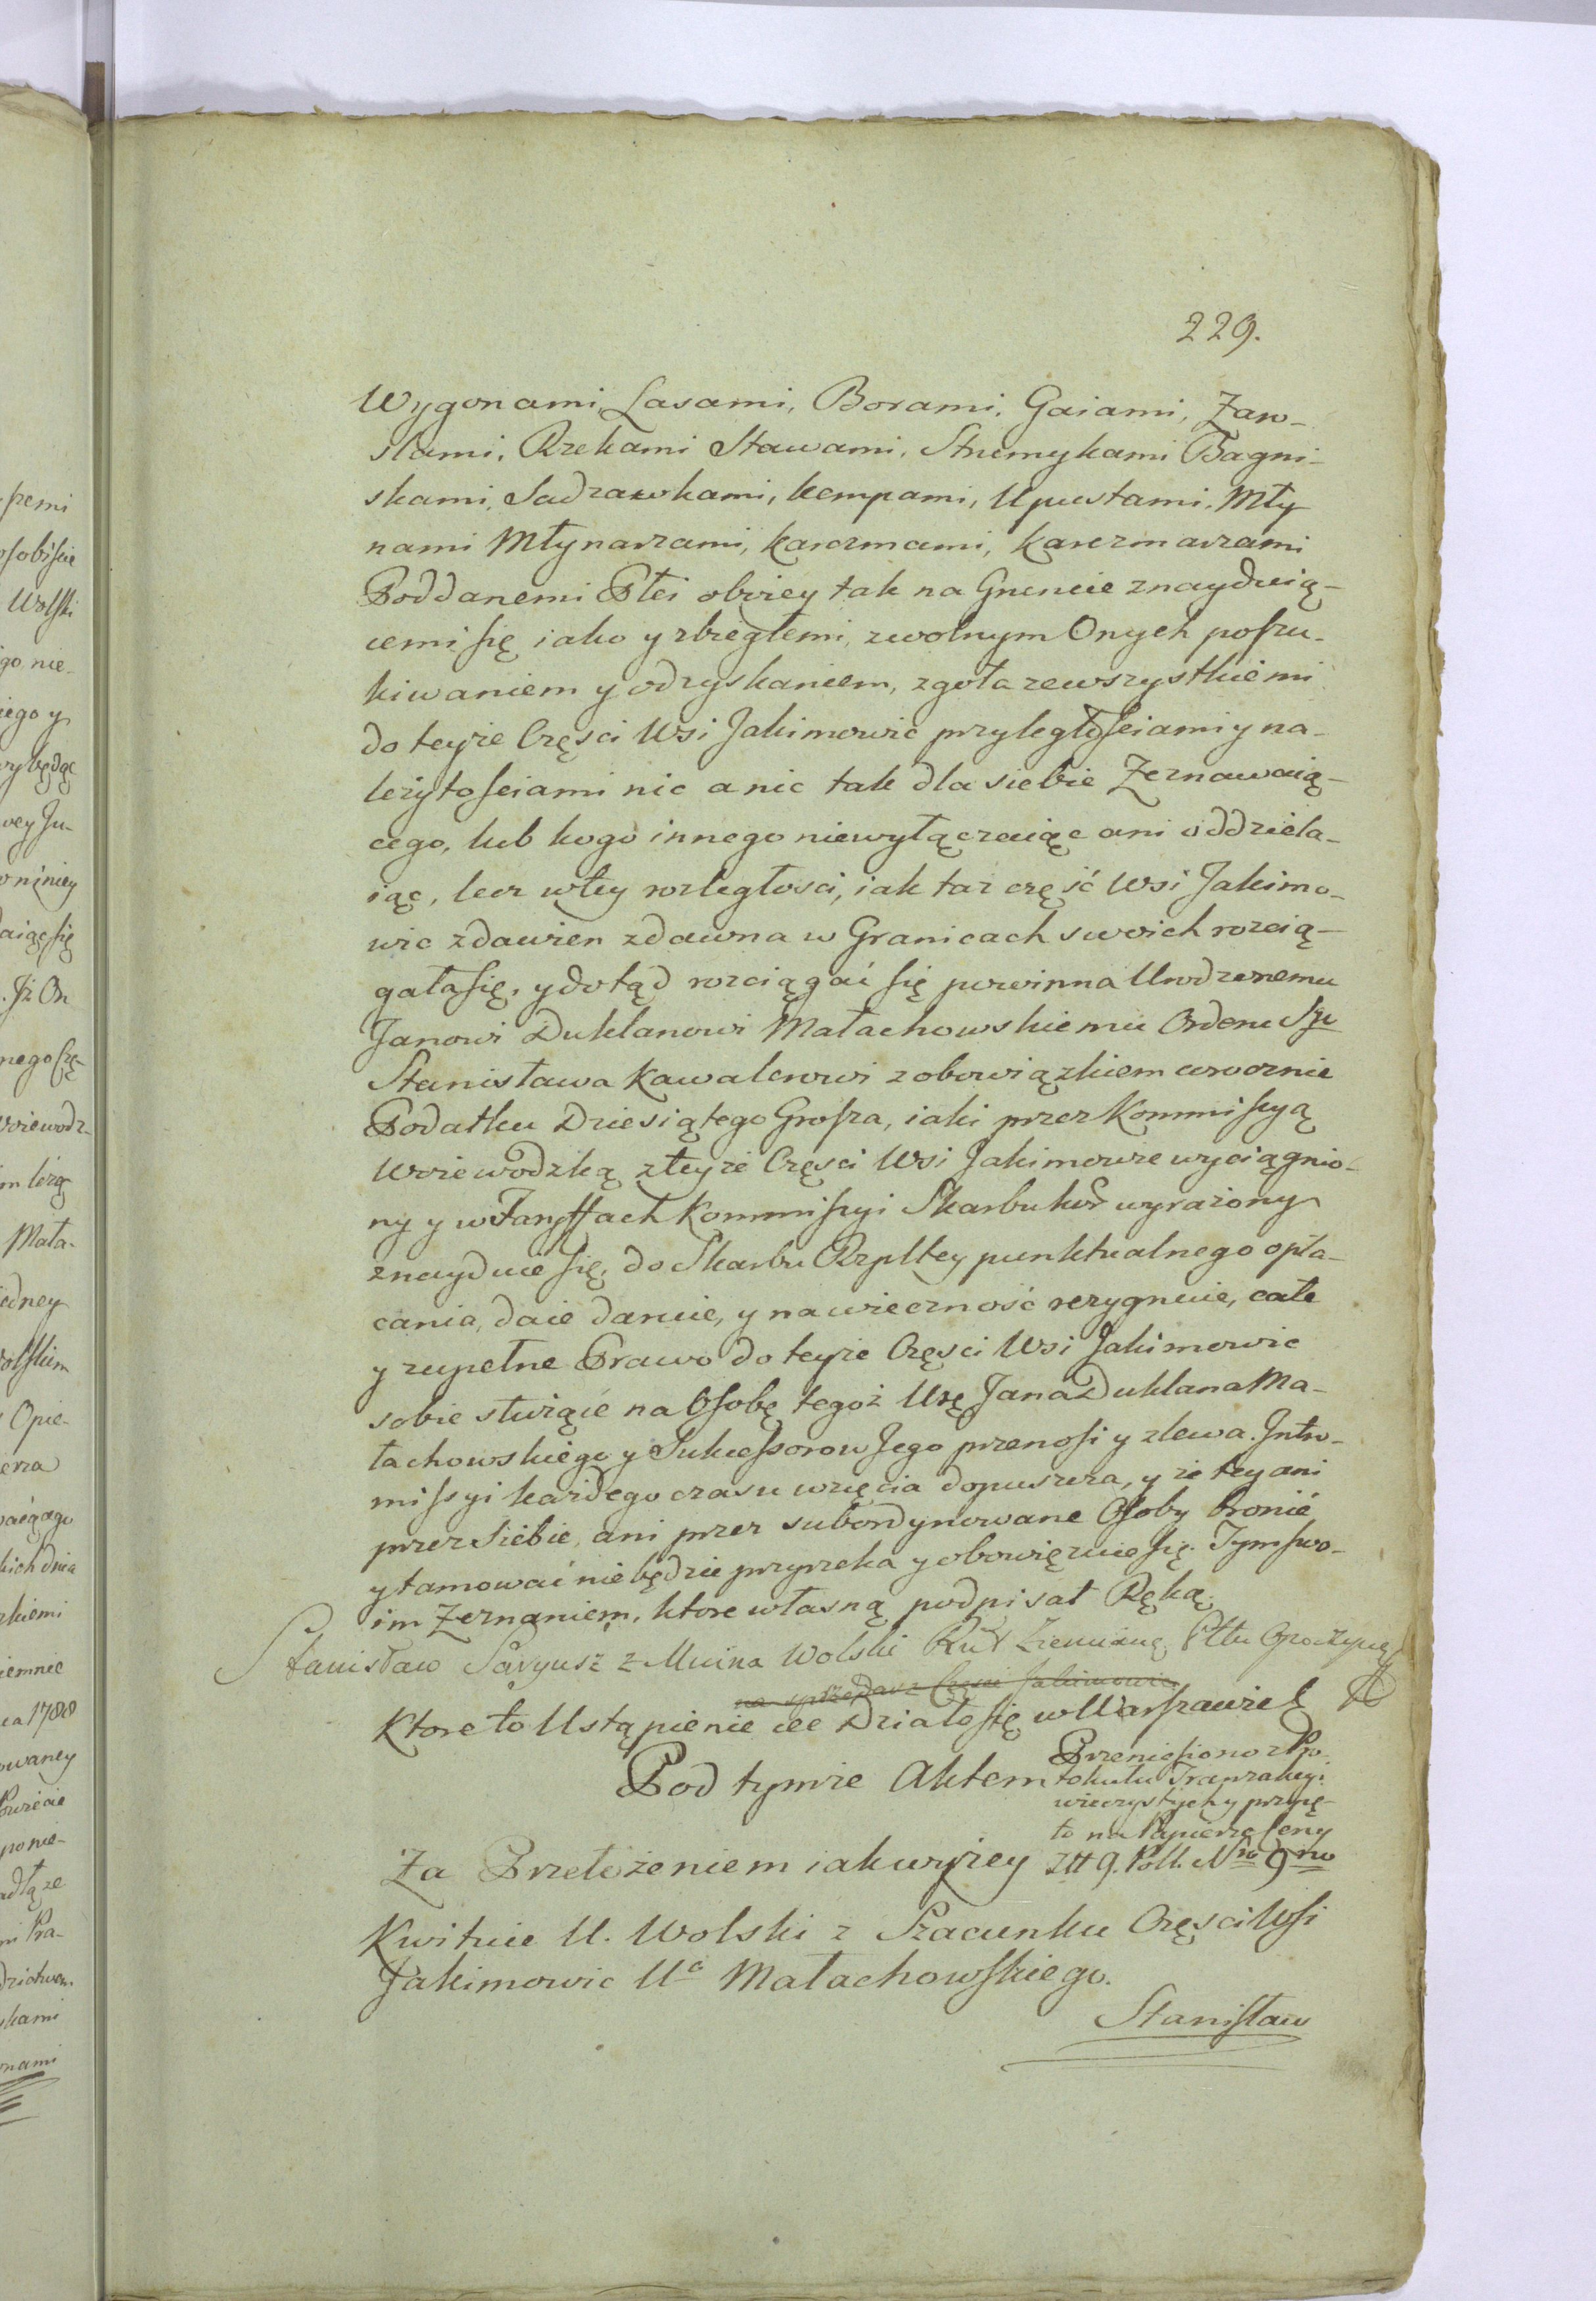 229.
Wygonami, Lasami, Borami, Gaiami, Zaro-
slami, Rzekami Stawami, Strumykami Bagni-
skami, Sadzawkami, kempami, Upustami, Mły
nami Młynarzami, karczmami, karczmarzami
Poddanemi Płci oboiey tak na Gruncie znayduią-
cemi się iako y zbiegłemi, zwolnym Onych poszu-
kiwaniem y odzyskaniem, zgoła zewszystkiemi
do teyże Części Wsi Jakimowic przyległościami y na-
leżytościami nic a nic tak dla siebie Zeznawaią-
cego, lub kogo innego niewyłączaiąc ani oddziela-
iąc, lecz w tey rozległosci, iak taż część Wsi Jakimo-
wic zdawien zdawna w Granicach swoich rozcią-
gała się, y dotąd rozciągać się powinna Urodzonemu
Janowi Duklanowi Małachowskiemu Orderu Sgo
Stanisława Kawalerowi z obowiązkiem corocznie
Podatku Dziesiątego Grosza, iaki przez Kommissyą
Woiewodzką z teyże Części Wsi Jakimowic wyciągnio-
ny y w Taryffach Kommissyi Skarbu kor wyrażony
znayduie się, do Skarbu Rzpltey punktualnego opła-
cania, daie daruie, y na wieczność rezygnuie, całe
y zupełne Prawo do teyże Części Wsi Jakimowic
sobie służące na Osobę tegoż Urę Jana Duklana Ma-
łachowskiego y Sukcessorow Jego przenosi y zlewa. Intro-
missyi każdego czasu wzięcia dopuszcza, y że tey ani
przez Siebie, ani przez subordynowane Osoby bronić
y tamować niebędzie przyrzeka y obowięzuie się. Tym swo-
im Zeznaniem, ktore własną podpisał Ręką.
Stanisław Saryusz z Mnina Wolski Ziemianę Pttu Opoczyńę
na sprzedarz Części Jakimowic
Ktore to Ustąpienie Działo się w Warszawie
Pod tymże Aktem
Przeniesiono z Pro-
tokułu Tranzakcyi
wieczystych y przyię-
to na Papierze Ceny
Za Przełożeniem iak wyżey
Ztt 9. Poll. Nro 9no
Kwituie U. Wolski z Szacunku Części Wsi
Jakimowic Uo Małachowskiego.
Stanisław